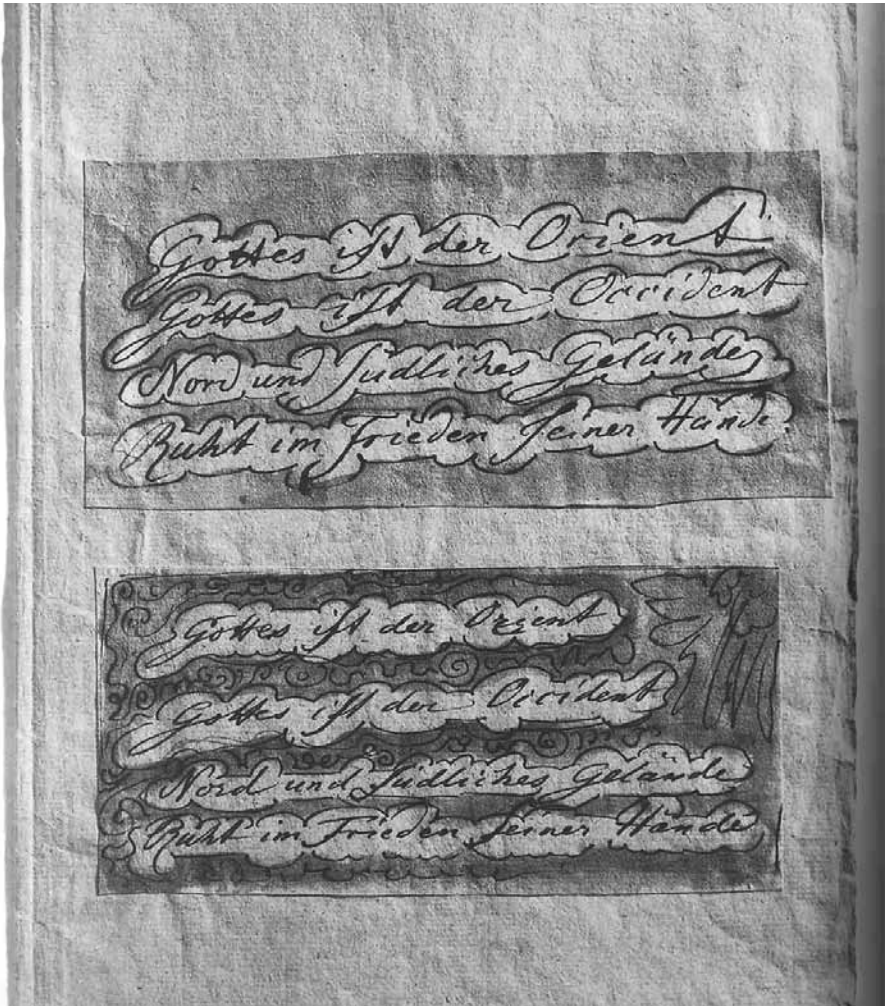 Gottes ist der Orient
Gottes ist der Occident
Nord und Südliches Gelände
Ruht im Frieden Seiner Hände.
Gottes ist der Orient
Gottes ist der Occident
Nord und Südliches Gelände
Ruht im Frieden Seiner Hände